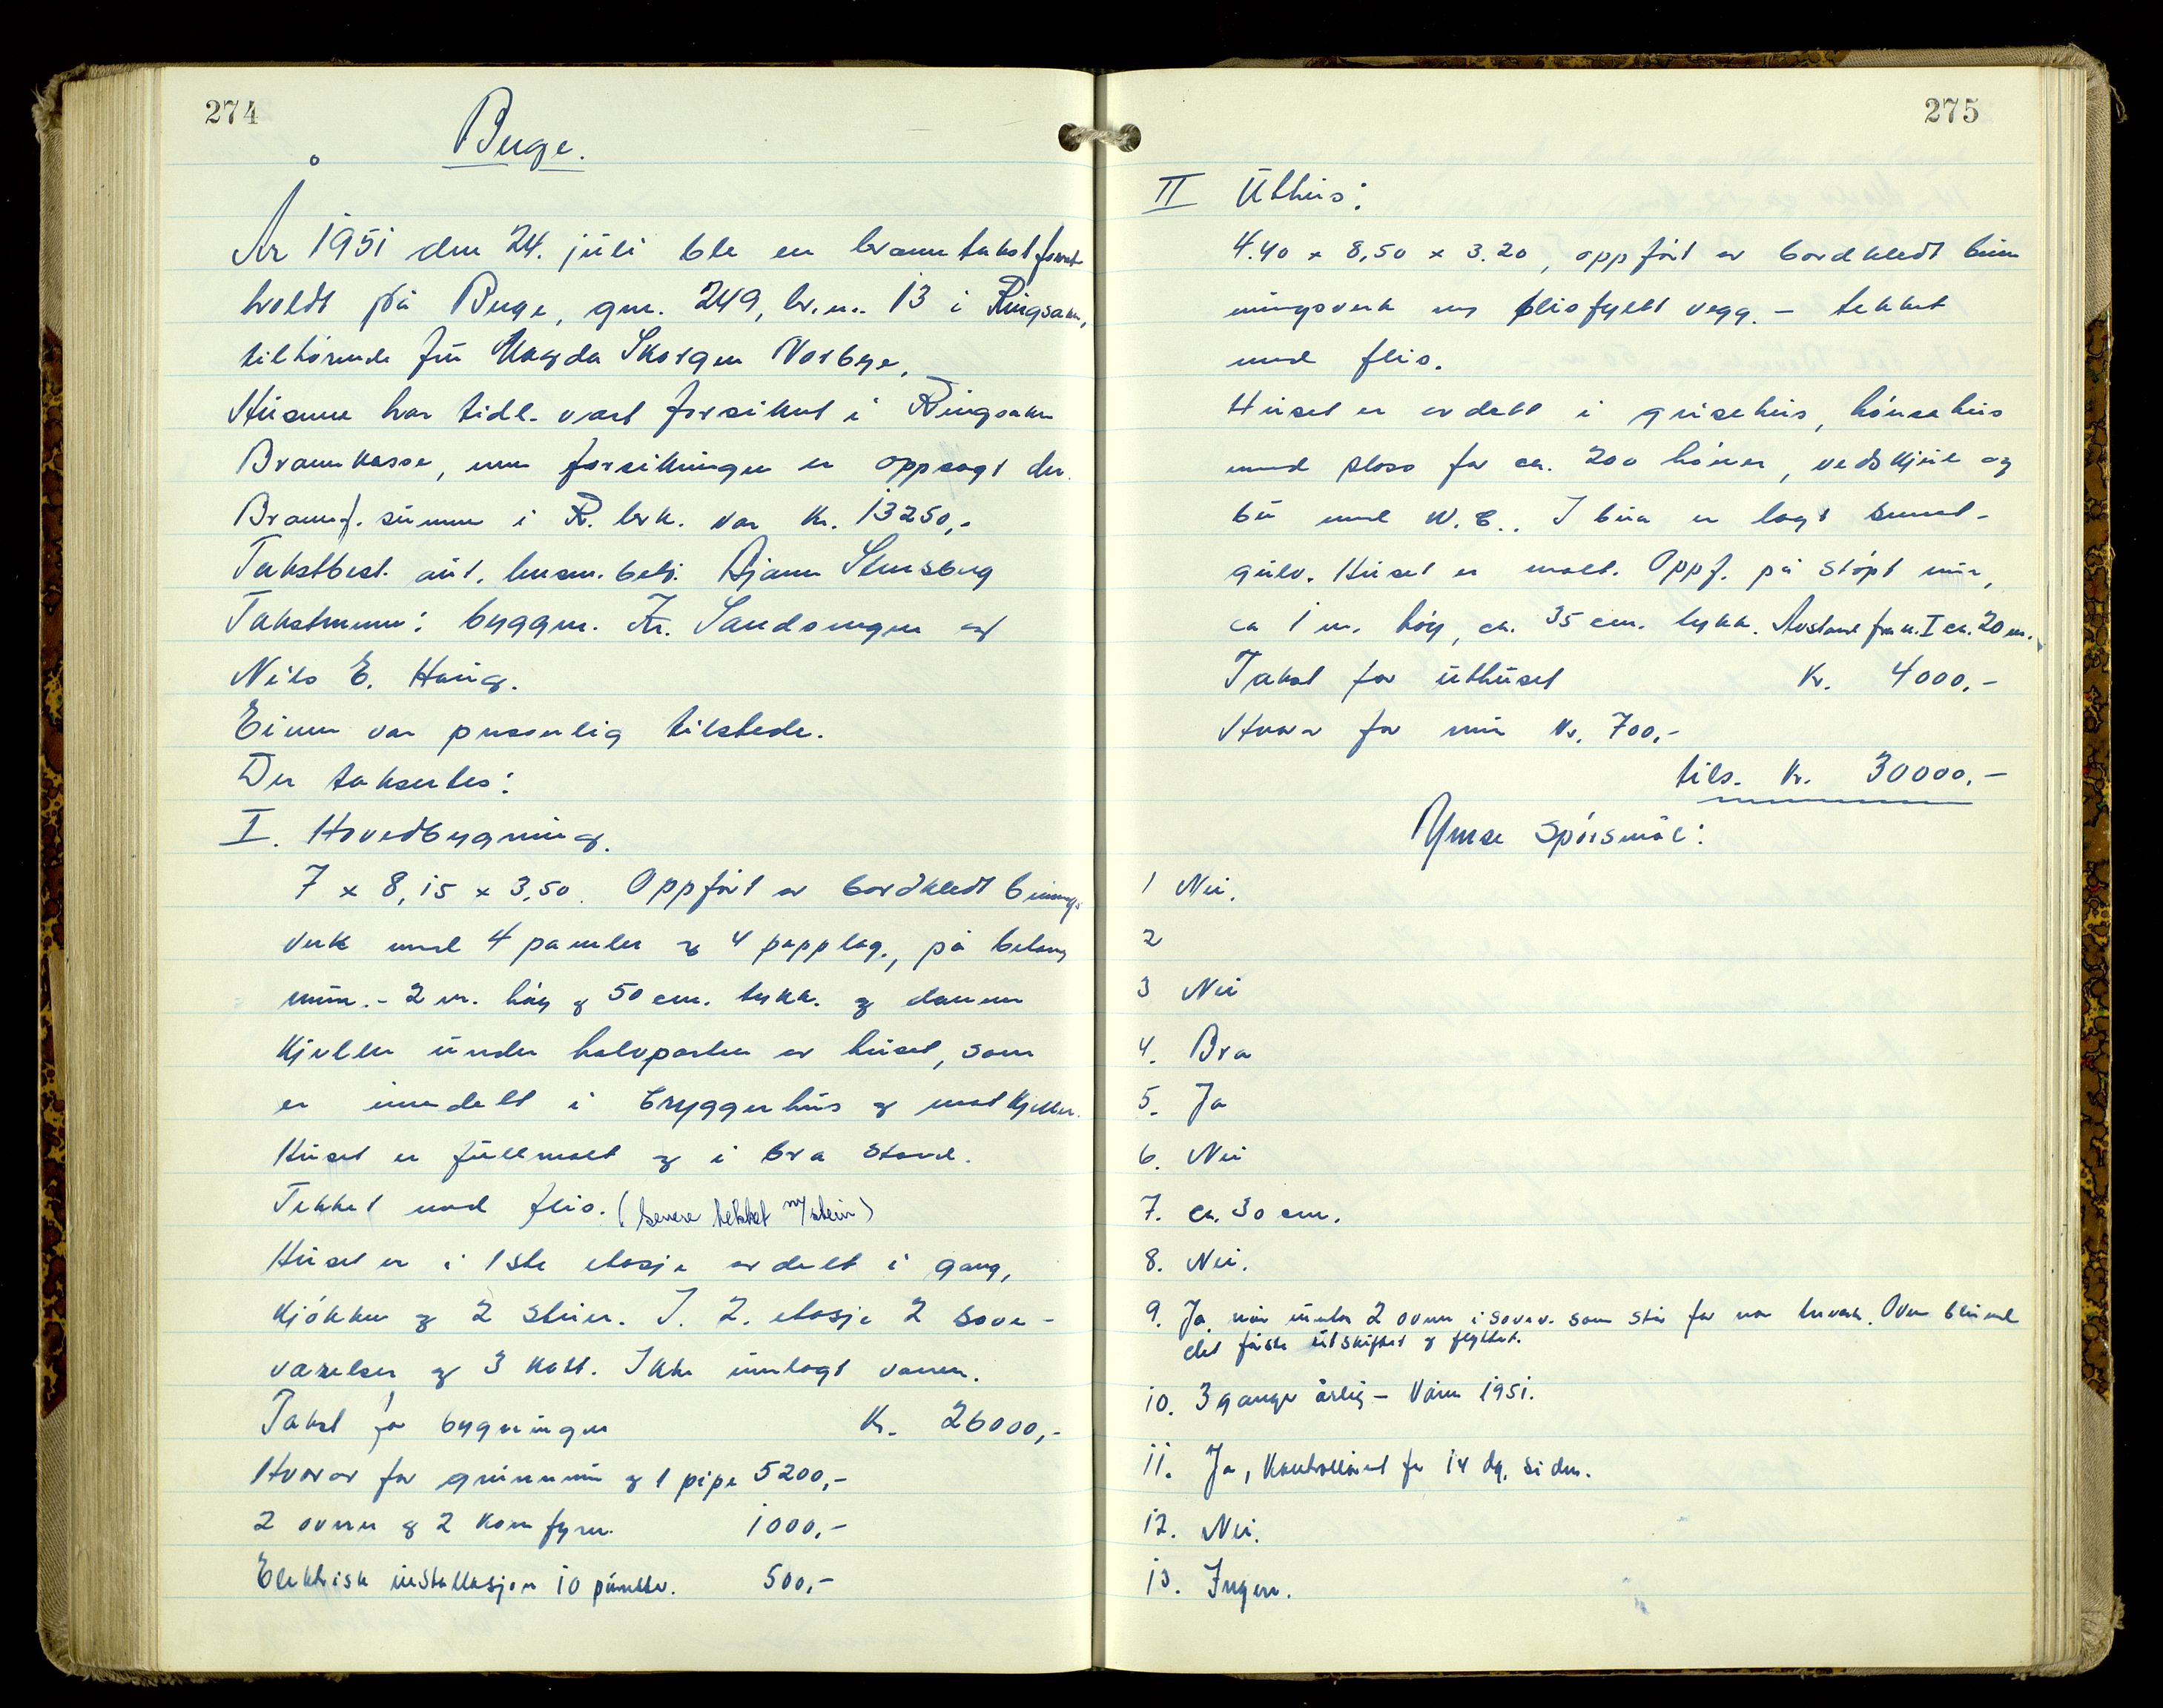 274
Berge.
År 1951 den 24. juli ble en branntakst foret.
holdt på Berge, gnr. 249, br.nr. 13 i Ringsaker,
tilhørende fru Magda Skorgen Norbye.
Husene har tidl. vært forsikret i Ringsaker
Brannkasse, men forsikringen er oppsagt der.
Brannf. summen i R. brk. var kr. 13250,-
Takstbest. aut. lensm. betj. Bjarne Stensberg
Takstmenn: byggm. Kr. Sandsengen og
Nils E. Haug.
Eieren var personlig tilstede.
Der takseres:
I. Hovedbygning.
7 x 8,15 x 3,50. Oppført av bordkledt bindings
verk med 4 paneler og 4 papplag., på betong
mur. - 2 m. høy og 50 cm. tykk. og danner
kjeller under halvparten av huset, som
er inndelt i bryggerhus og matkjeller.
Huset er fullmalt og i bra stand.
Tekket med flis. (senere tekket m/stein)
Huset er i 1ste etasje avdelt i gang,
kjøkken og 2 stuer. I 2. etasje 2 sove-
værelser og 3 kott. Ikke innlagt vann.
Takst for bygningen Kr. 26000,-
Hvorav for grunnmur og 1 pipe 5200,-
2 ovner og 2 komfyrer. 1000,-
Elektrisk installasjon 10 punkter. 500,-
275
II Uthus:
4.40 x 8,50 x 3.20, oppført av bordkledt bin
ningsverk m flisfyllt vegg. - tekket
med flis.
Huset er avdelt i grisehus, hønsehus
med plass for ca. 200 høner, vedskjul og
bu med W.C.. I bua er lagt sement-
gulv. Huset er malt. Oppf. på støpt mur,
ca 1 m. høy, ca. 35 cm. tykk. Avstand fra n. I ca. 20 m.
Takst for uthuset Kr. 4000,-
Hvorav for mur kr. 700,-
tils. kr. 30000.-
Ymse spørsmål:
1 Nei.
2
3 Nei
4. Bra
5. Ja
6. Nei
7. ca. 30 cm.
8. Nei.
9. Ja, når untas 2 ovner i sovev. som står for nær treverk. Oven blir med
det første utskiftet og flyttet.
10. 3 ganger årlig - Våren 1951.
11. Ja, kontrollert for 14 dg. siden.
12. Nei.
13. Ingen.